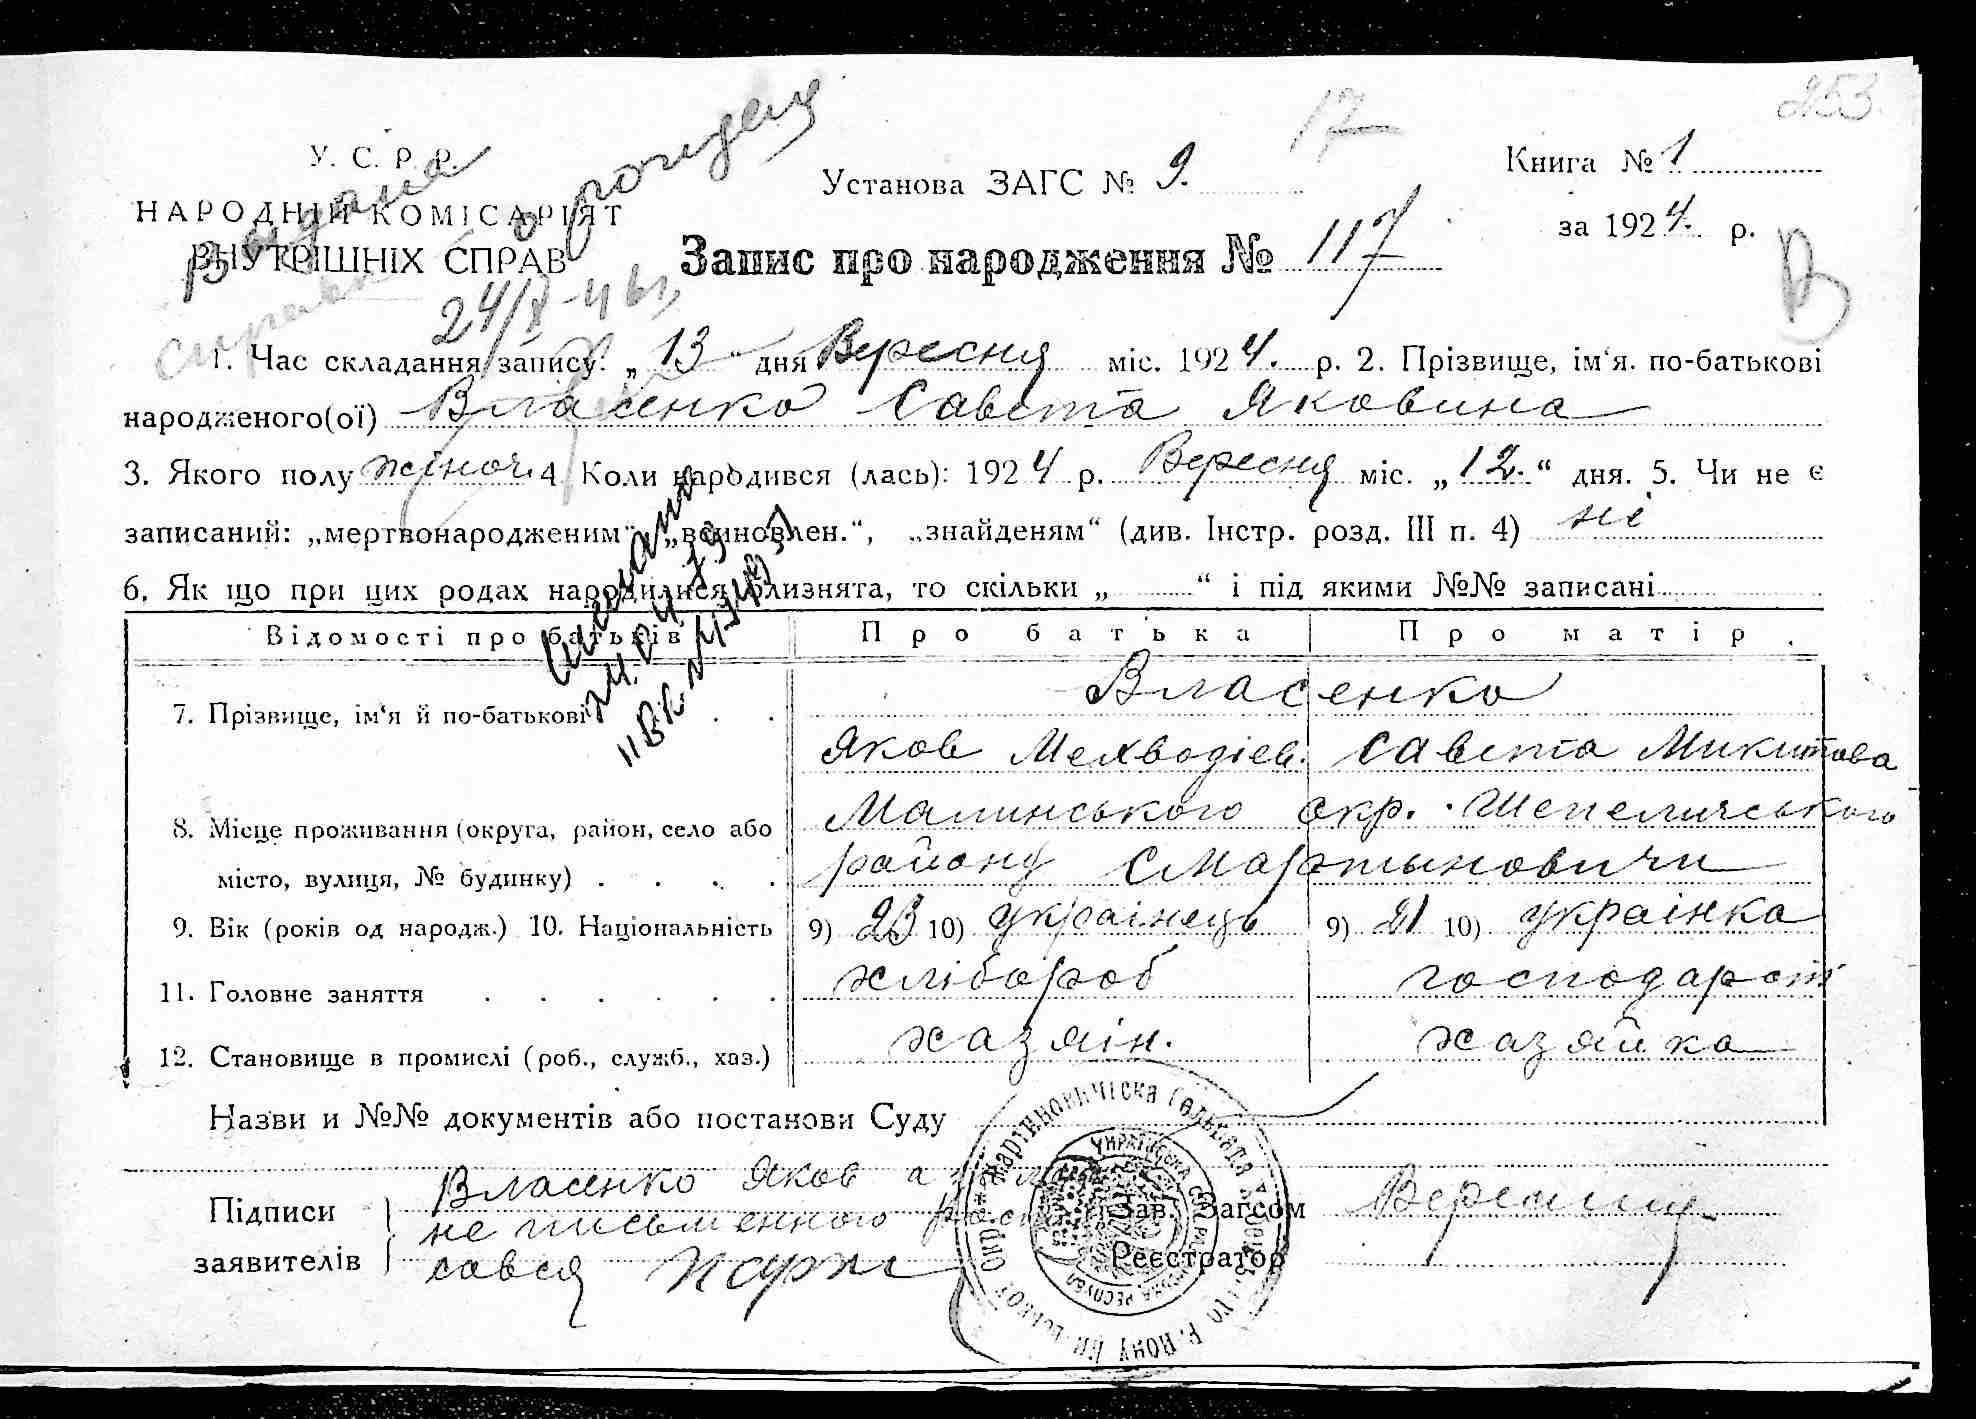 253
У. С. Р. Р.
НАРОДНІЙ КОМІСАРІЯТ
ВНУТРІШНІХ СПРАВ
Видана
справка о рожден
24/X-46 г.
17
Установа ЗАГС № 9.
Книга № 1
за 1924. р.
Запис про народження № 117
В
1. Час складання запису: „ 13 “ дня Вересня міс. 1924. р. 2. Прізвище, ім‘я. по-батькові
народженого(ої) Власенко Савета Яковина
3. Якого полу жіноч. 4. Коли народився (лась): 1924 р. Вересня міс. „ 12. “ дня. 5. Чи не є
записаний: „мертвонародженим“, „всиновлен.“, „знайденям“ (див. Інстр. розд. III п. 4) ні
6. Як що при цих родах народилися близнята, то скільки „ “ і під якими №№ записані
Відомості про батьків Про батька Про матір.
7. Прізвище, ім‘я й по-батькові Власенко
Яков Мехводіев. Савета Микитова
8. Місце проживання (округа, район, село або Малинського окр. Шепеличського
місто, вулиця, № будинку) району с Мартыновичи
9. Вік (років од народж.) 10. Національність 9) 23 10) українець 9) 21 10) українка
11. Головне заняття хлібороб господарст
12. Становище в промислі (роб., служб., хаз.) хазяін. хазяйка
Назви и №№ документів або постанови Суду
Підписи
заявителів
Власенко Яков а за
не письменного рос
савея
Зав. Загсом
Реєстратор